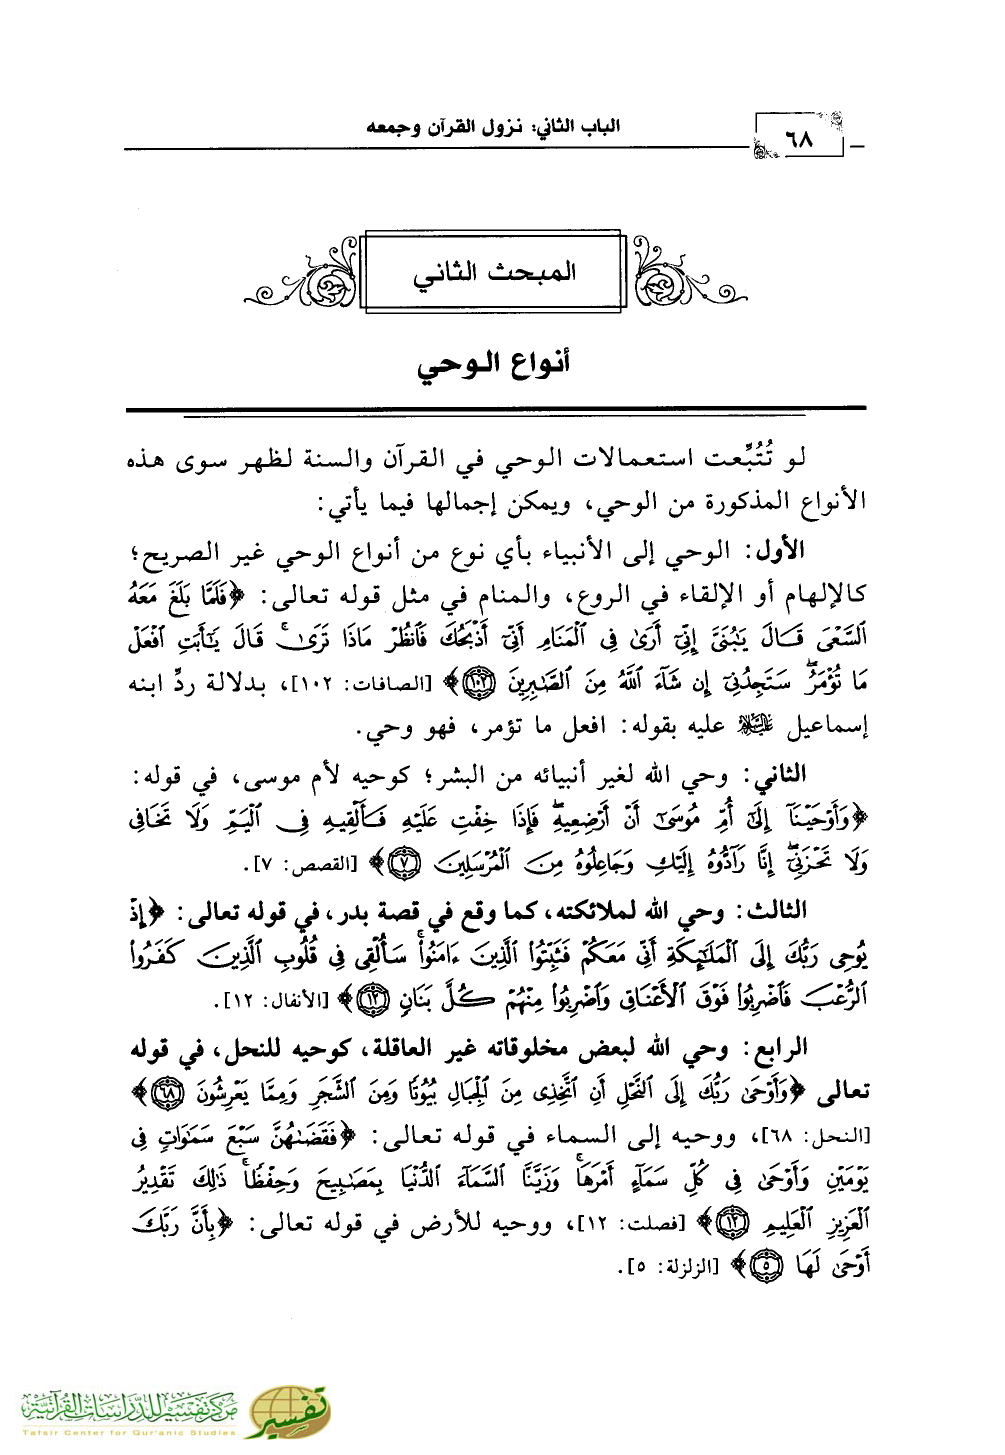 ٦٨
الباب الثاني: نزول القرآن وجمعه
المبحث الثاني
أنواع الوحي
لو تُتُبِّعت استعمالات الوحي في القرآن والسنة لظهر سوى هذه
الأنواع المذكورة من الوحي، ويمكن إجمالها فيما يأتي:
الأول: الوحي إلى الأنبياء بأي نوع من أنواع الوحي غير الصريح؛
كالإلهام أو الإلقاء في الروع، والمنام في مثل قوله تعالى: ﴿فَلَمَّا بَلَغَ مَعَهُ
ٱلسَّعْىَ قَالَ يَٰبُنَىَّ إِنِّىٓ أَرَىٰ فِى ٱلْمَنَامِ أَنِّىٓ أَذْبَحُكَ فَٱنظُرْ مَاذَا تَرَىٰۚ قَالَ يَٰٓأَبَتِ ٱفْعَلْ
مَا تُؤْمَرُۖ سَتَجِدُنِىٓ إِن شَآءَ ٱللَّهُ مِنَ ٱلصَّٰبِرِينَ ١٠٢﴾ [الصافات: ١٠٢]، بدلالة ردِّ ابنه
إسماعيل عليه السلام عليه بقوله: افعل ما تؤمر، فهو وحي.
الثاني: وحي الله لغير أنبيائه من البشر؛ كوحيه لأم موسى، في قوله:
﴿وَأَوْحَيْنَآ إِلَىٰٓ أُمِّ مُوسَىٰٓ أَنْ أَرْضِعِيهِۖ فَإِذَا خِفْتِ عَلَيْهِ فَأَلْقِيهِ فِى ٱلْيَمِّ وَلَا تَخَافِى
وَلَا تَحْزَنِىٓۖ إِنَّا رَآدُّوهُ إِلَيْكِ وَجَاعِلُوهُ مِنَ ٱلْمُرْسَلِينَ ٧﴾ [القصص: ٧].
الثالث: وحي الله لملائكته، كما وقع في قصة بدر، في قوله تعالى: ﴿إِذْ
يُوحِى رَبُّكَ إِلَى ٱلْمَلَٰٓئِكَةِ أَنِّى مَعَكُمْ فَثَبِّتُوا۟ ٱلَّذِينَ ءَامَنُوا۟ۚ سَأُلْقِى فِى قُلُوبِ ٱلَّذِينَ كَفَرُوا۟
ٱلرُّعْبَ فَٱضْرِبُوا۟ فَوْقَ ٱلْأَعْنَاقِ وَٱضْرِبُوا۟ مِنْهُمْ كُلَّ بَنَانٍ ١٢﴾ [الأنفال: ١٢].
الرابع: وحي الله لبعض مخلوقاته غير العاقلة، كوحيه للنحل، في قوله
تعالى ﴿وَأَوْحَىٰ رَبُّكَ إِلَى ٱلنَّحْلِ أَنِ ٱتَّخِذِى مِنَ ٱلْجِبَالِ بُيُوتًا وَمِنَ ٱلشَّجَرِ وَمِمَّا يَعْرِشُونَ ٦٨﴾
[النحل: ٦٨]، ووحيه إلى السماء في قوله تعالى: ﴿فَقَضَىٰهُنَّ سَبْعَ سَمَٰوَاتٍ فِى
يَوْمَيْنِ وَأَوْحَىٰ فِى كُلِّ سَمَآءٍ أَمْرَهَاۚ وَزَيَّنَّا ٱلسَّمَآءَ ٱلدُّنْيَا بِمَصَٰبِيحَ وَحِفْظًاۚ ذَٰلِكَ تَقْدِيرُ
ٱلْعَزِيزِ ٱلْعَلِيمِ ١٢﴾ [فصلت: ١٢]، ووحيه للأرض في قوله تعالى: ﴿بِأَنَّ رَبَّكَ
أَوْحَىٰ لَهَا ٥﴾ [الزلزلة: ٥].
مركز تفسير للدراسات القرآنية
Tafsir Center for Qur'anic Studies
تفسير